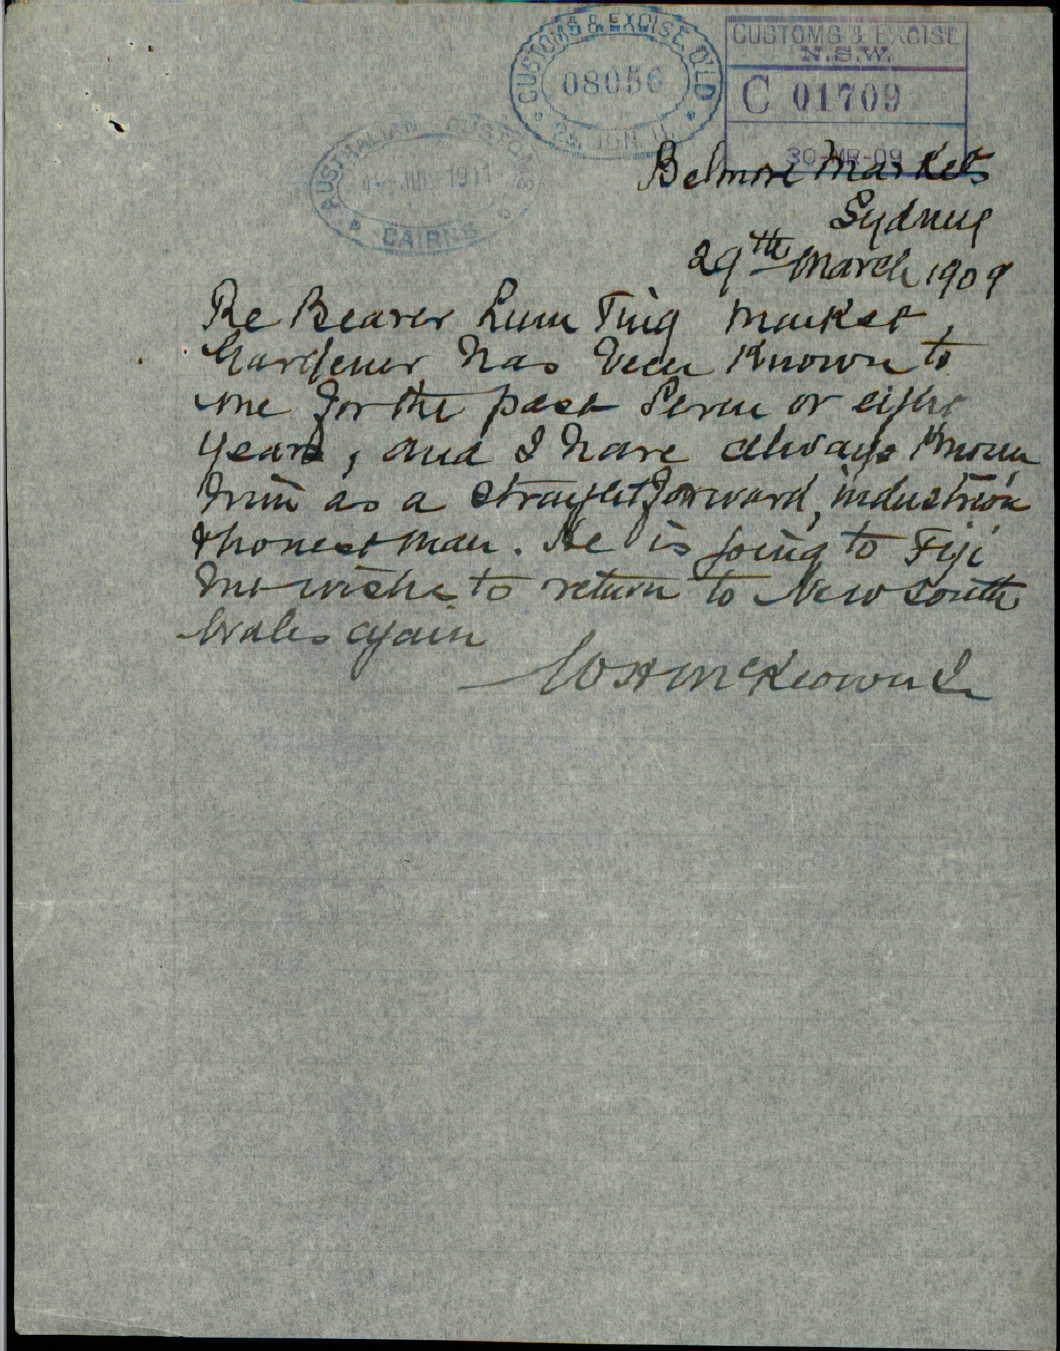 CUSTOMS & EXCISE Q'LD
08056
CUSTOMS & EXCISE
N.S.W.
C 01709
30-MR-09
AUSTRALIAN CUSTOMS
1911
CAIRNS
Belmore Markets
Sydney
29th March 1909
Re Bearer Lum Ting Market
Gardener has been Known to
me for the past Seven or eight
years, and I have always Known
him as a straightforward, industrious
& honest man. He is going to Fiji
but wishes to return to New South
Wales again
W H McKeown